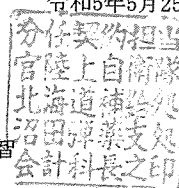 令和5年5月25
分任契約担当
官陸上自衛隊
北海道補給処
沼田弾薬支処
会計科長之印
智